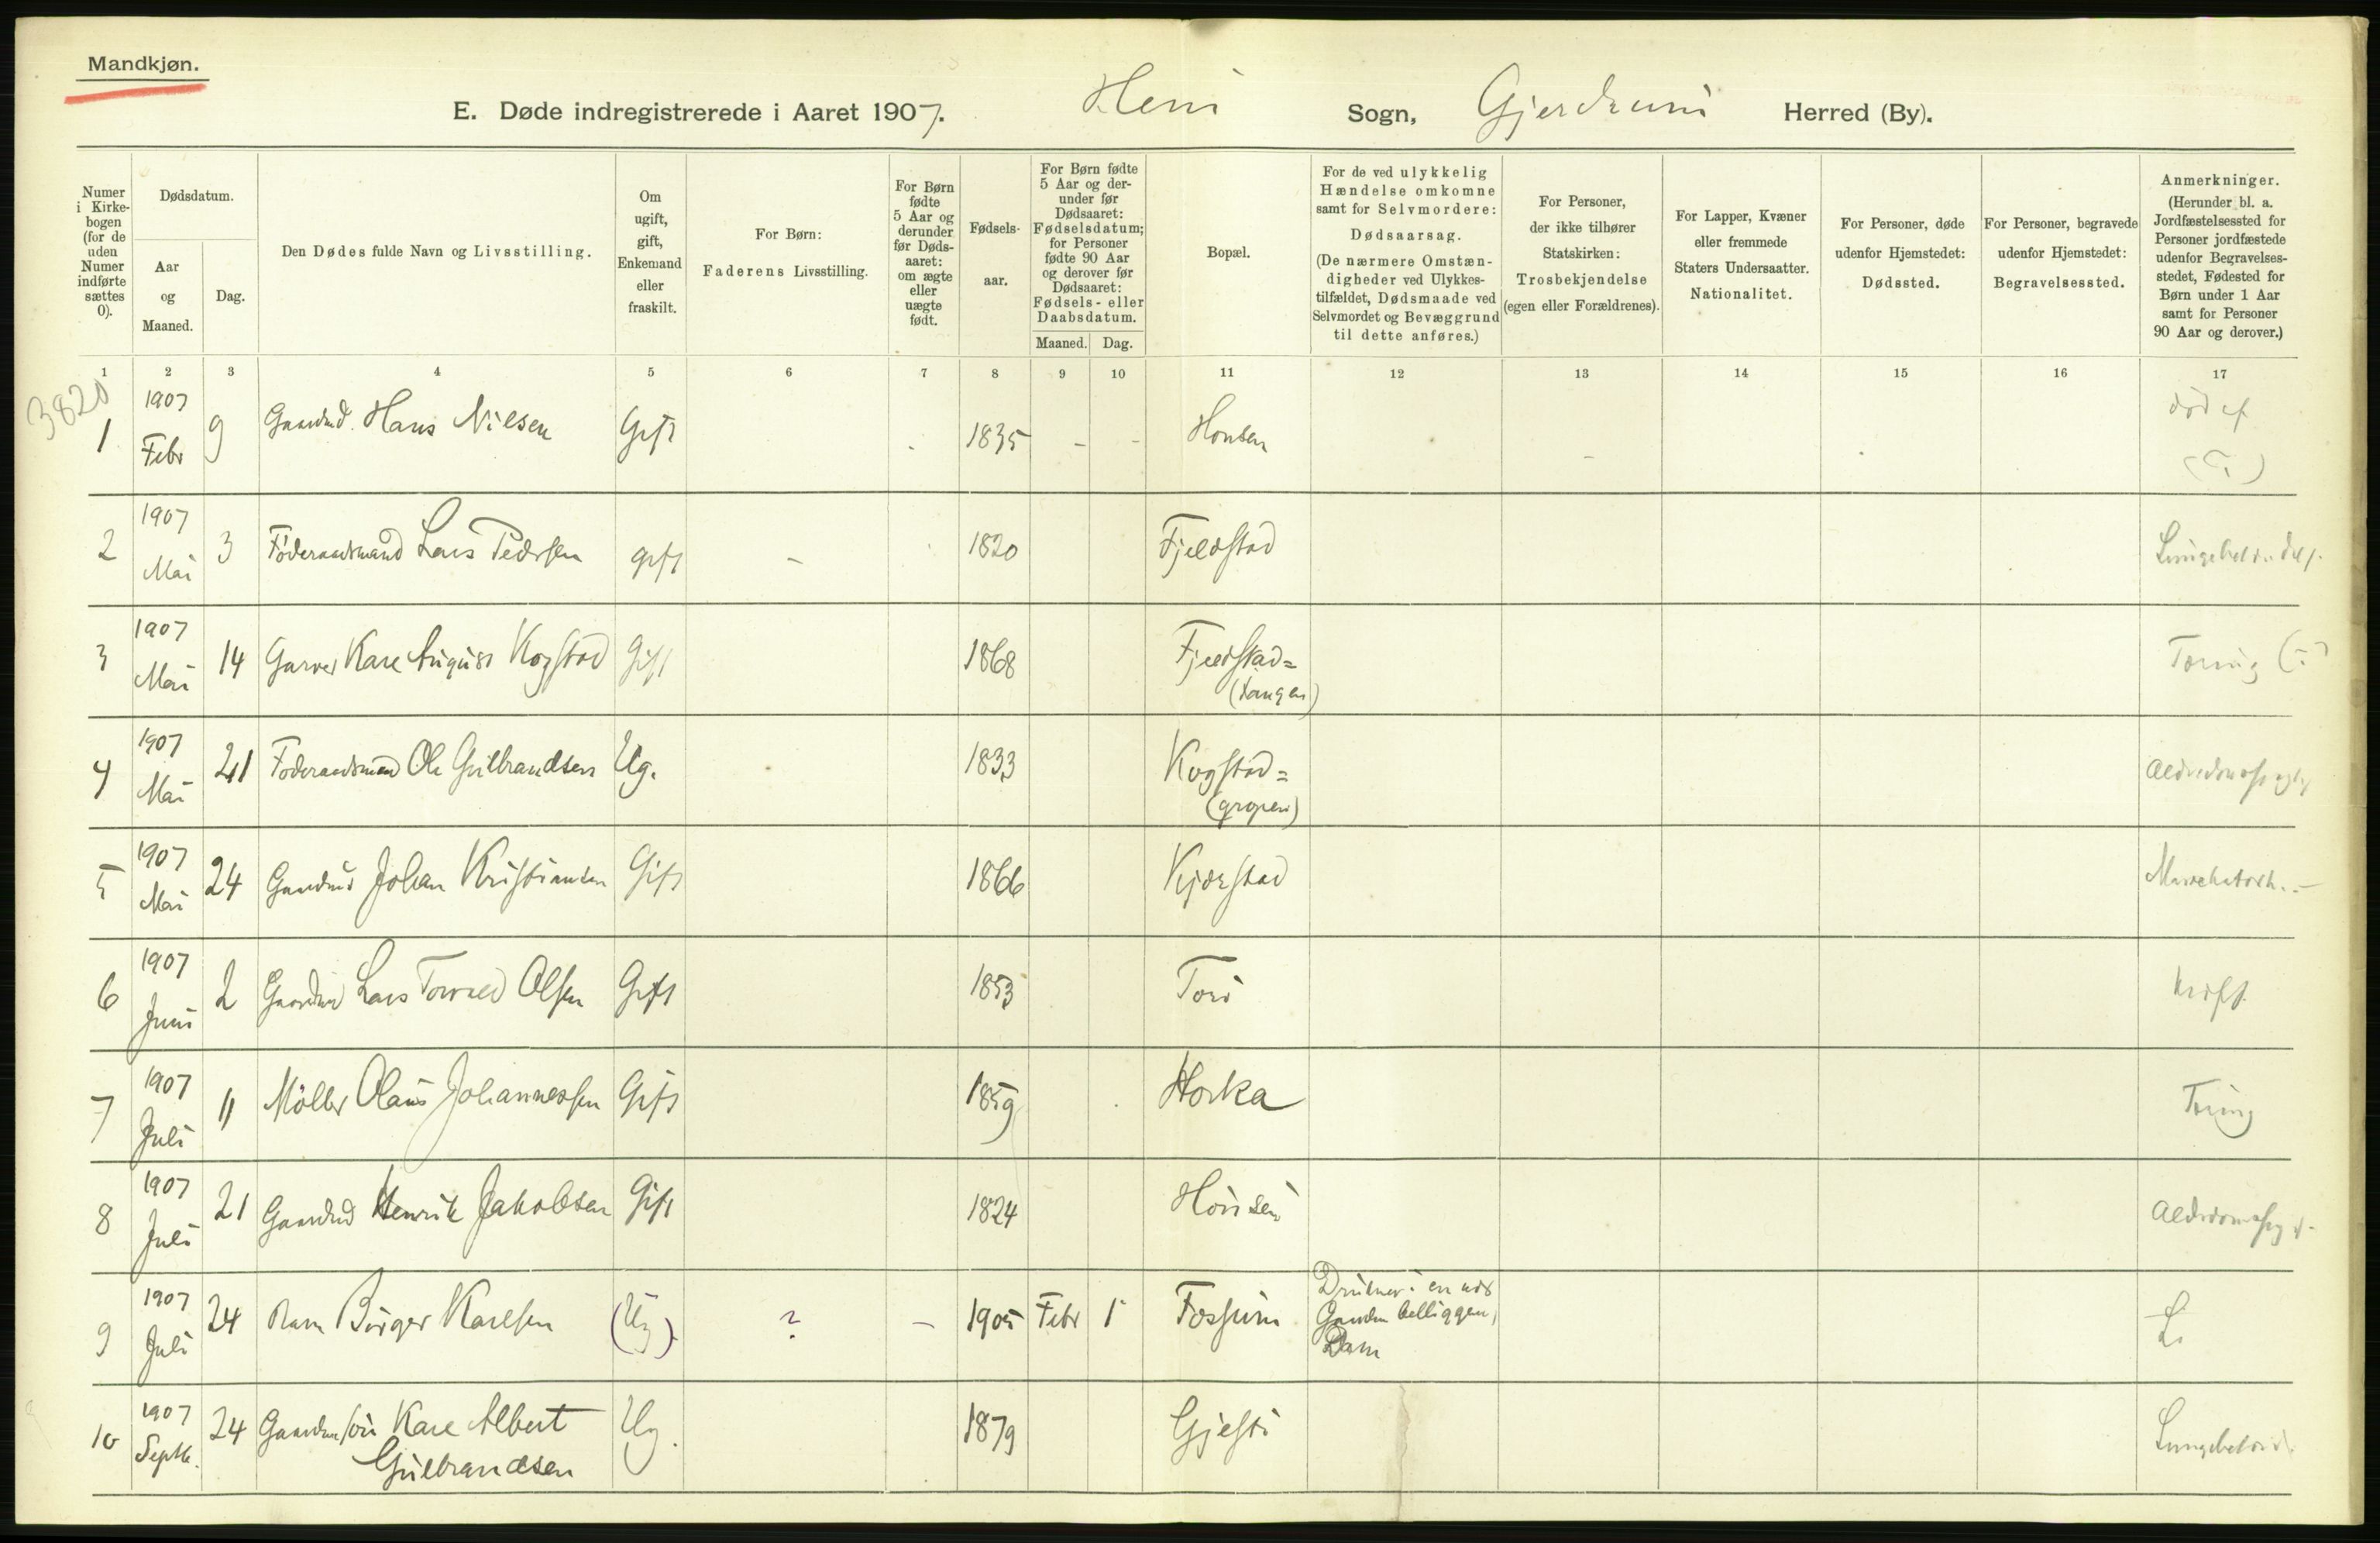 Mandkjøn.
E. Døde indregistrerede i Aaret 1907. Heni Sogn, Gjerdrum Herred (By).
Numer i Kirkebogen (for de uden Numer indførte sættes 0).
Dødsdatum.
Aar og Maaned.
Dag.
Den Dødes fulde Navn og Livsstilling.
Om ugift, gift, Enkemand eller fraskilt.
For Børn: Faderens Livsstilling.
For Børn fødte 5 Aar og derunder før Dødsaaret: om ægte eller uægte født.
Fødselsaar.
For Børn fødte 5 Aar og derunder før Dødsaaret: Fødselsdatum; for Personer fødte 90 Aar og derover før Dødsaaret: Fødsels- eller Daabsdatum.
Maaned. Dag.
Bopæl.
For de ved ulykkelig Hændelse omkomne samt for Selvmordere: Dødsaarsag. (De nærmere Omstændigheder ved Ulykkestilfældet, Dødsmaade ved Selvmordet og Bevæggrund til dette anføres.)
For Personer, der ikke tilhører Statskirken: Trosbekjendelse (egen eller Forældrenes).
For Lapper, Kvæner eller fremmede Staters Undersaatter. Nationalitet.
For Personer, døde udenfor Hjemstedet: Dødssted.
For Personer, begravede udenfor Hjemstedet: Begravelsessted.
Anmerkninger. (Herunder bl. a. Jordfæstelsessted for Personer jordfæstede udenfor Begravelsesstedet, Fødested for Børn under 1 Aar samt for Personer 90 Aar og derover.)
1 2 3 4 5 6 7 8 9 10 11 12 13 14 15 16 17
3820
1 1907 Febr 9 Gaardmd. Hans Nilsen Gift - 1835 - - Honsen -
2 1907 Mai 3 Föderaadsmand Lars Pedersen gift - 1820 Fjeldstad
3 1907 Mai 14 Garver Karl August Kogstad Gift 1868 Fjeldstad= (tangen)
4 1907 Mai 21 Foderaadsmand Ole Gulbrandsen Ug. 1833 Kogstad= (gropen)
5 1907 Mai 24 Gaardmd Johan Kristiansen Gift 1866 Kjærstad
6 1907 Juni 2 Gaardmd Lars Torvald Olsen Gift 1853 Kræft.
7 1907 Juli 11 Möller Olaus Johannessen Gift 1859 Horka Tæring
8 1907 Juli 21 Gaardmd Henrik Jakobsen Gift 1824 Hønsen
9 1907 Juli 24 Barn Birger Karlsen (Ug) ? - 1905 Febr 1 Fossum Druknet i en ved Gaarden beliggende Dam
10 1907 Septb. 24 Gaardmsøn Karl Albert Gulbrandsen Ug. 1879 Gjesti